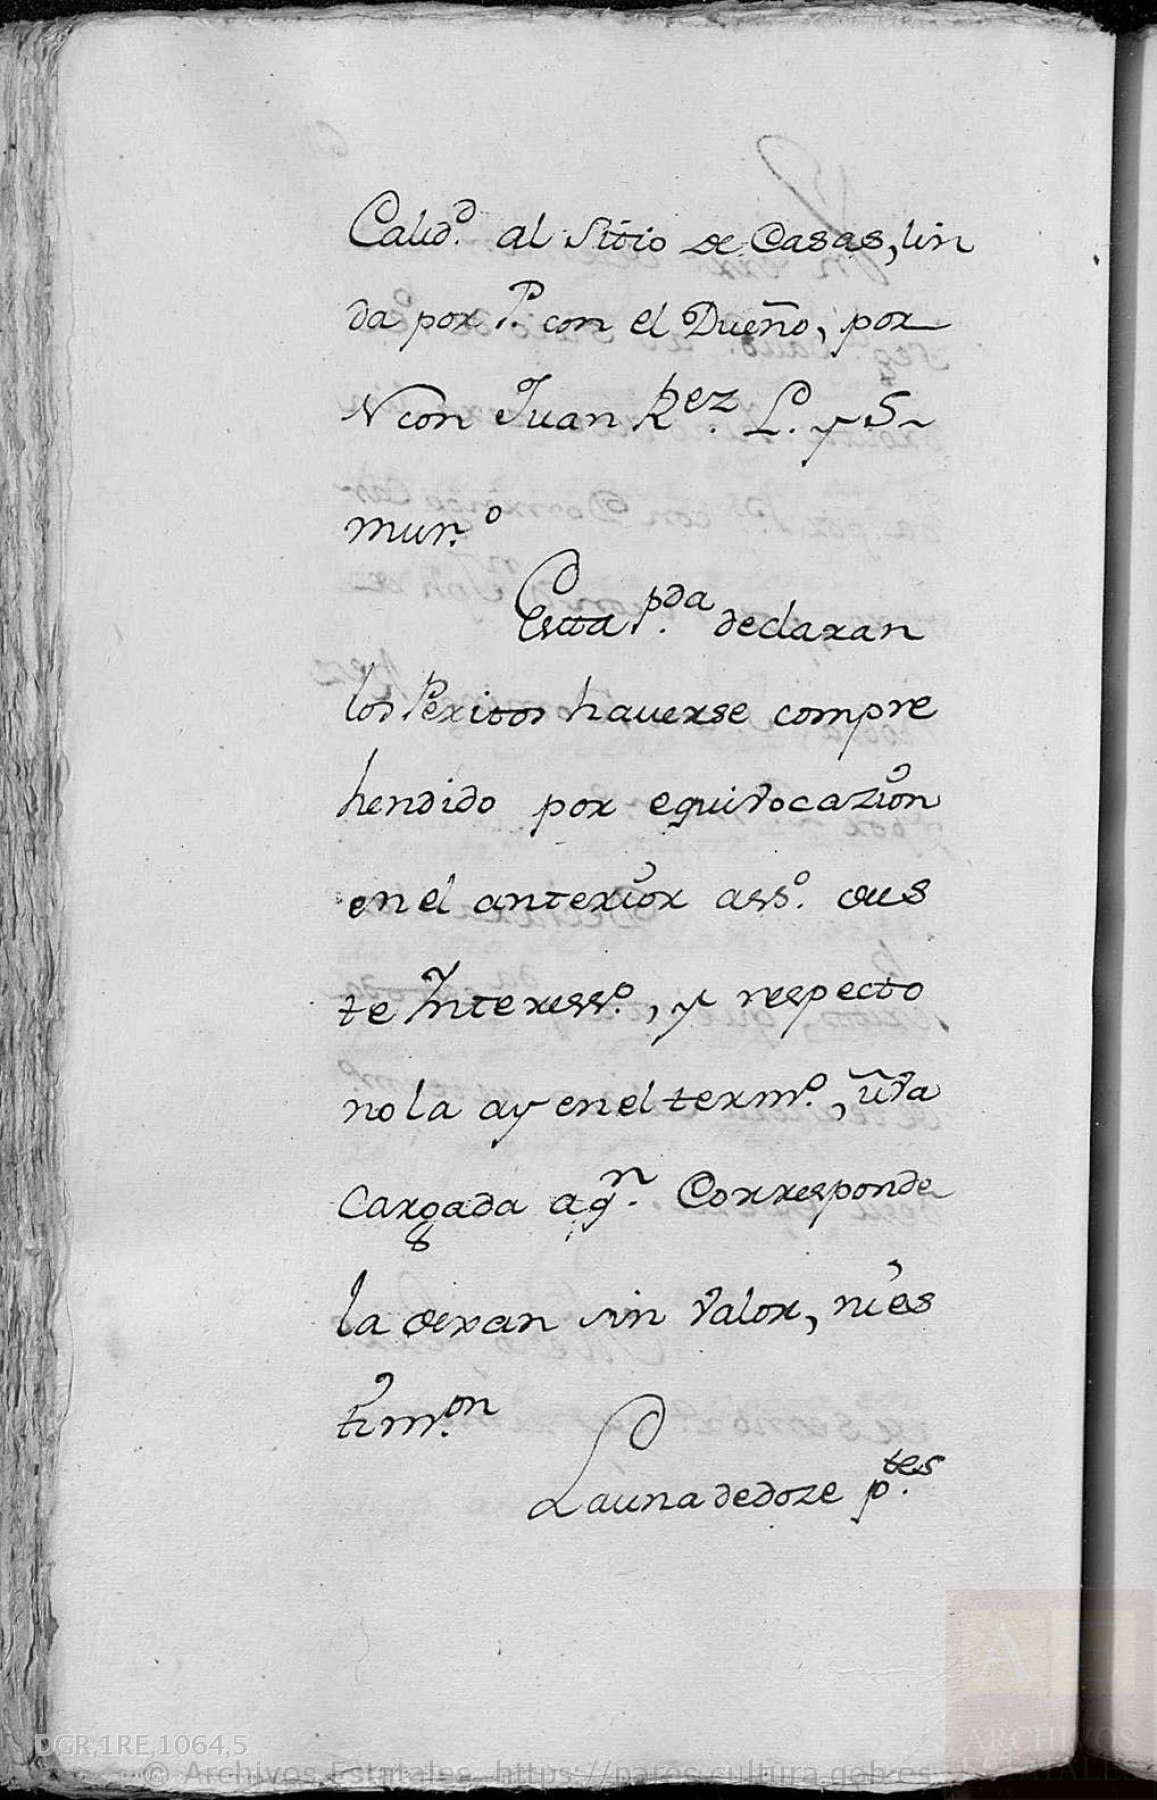 Calid.d al Sitio de Casas, lin
da por P. con el Dueño, por
N con Juan Rpez. L. y S~
mur.o
Esta p.da declaran
los Peritos hauerse compre
hendido por equivocazion
en el anterior ass.o de es
te Interess.o, y respecto
no la ay en el term.o, ni va
cargada a q.n Corresponde
la dexan sin valor, ni es
tim.on
La una de doze p.tes
DGR,1RE,1064,5
© Archivos Estatales, https://pares.cultura.gob.es
AE
ARCHIVOS
ESTATALES